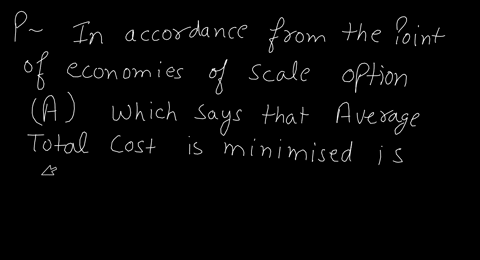 P~ In accordance from the Point
of economies of scale option
(A) which says that Average
Total Cost is minimised is